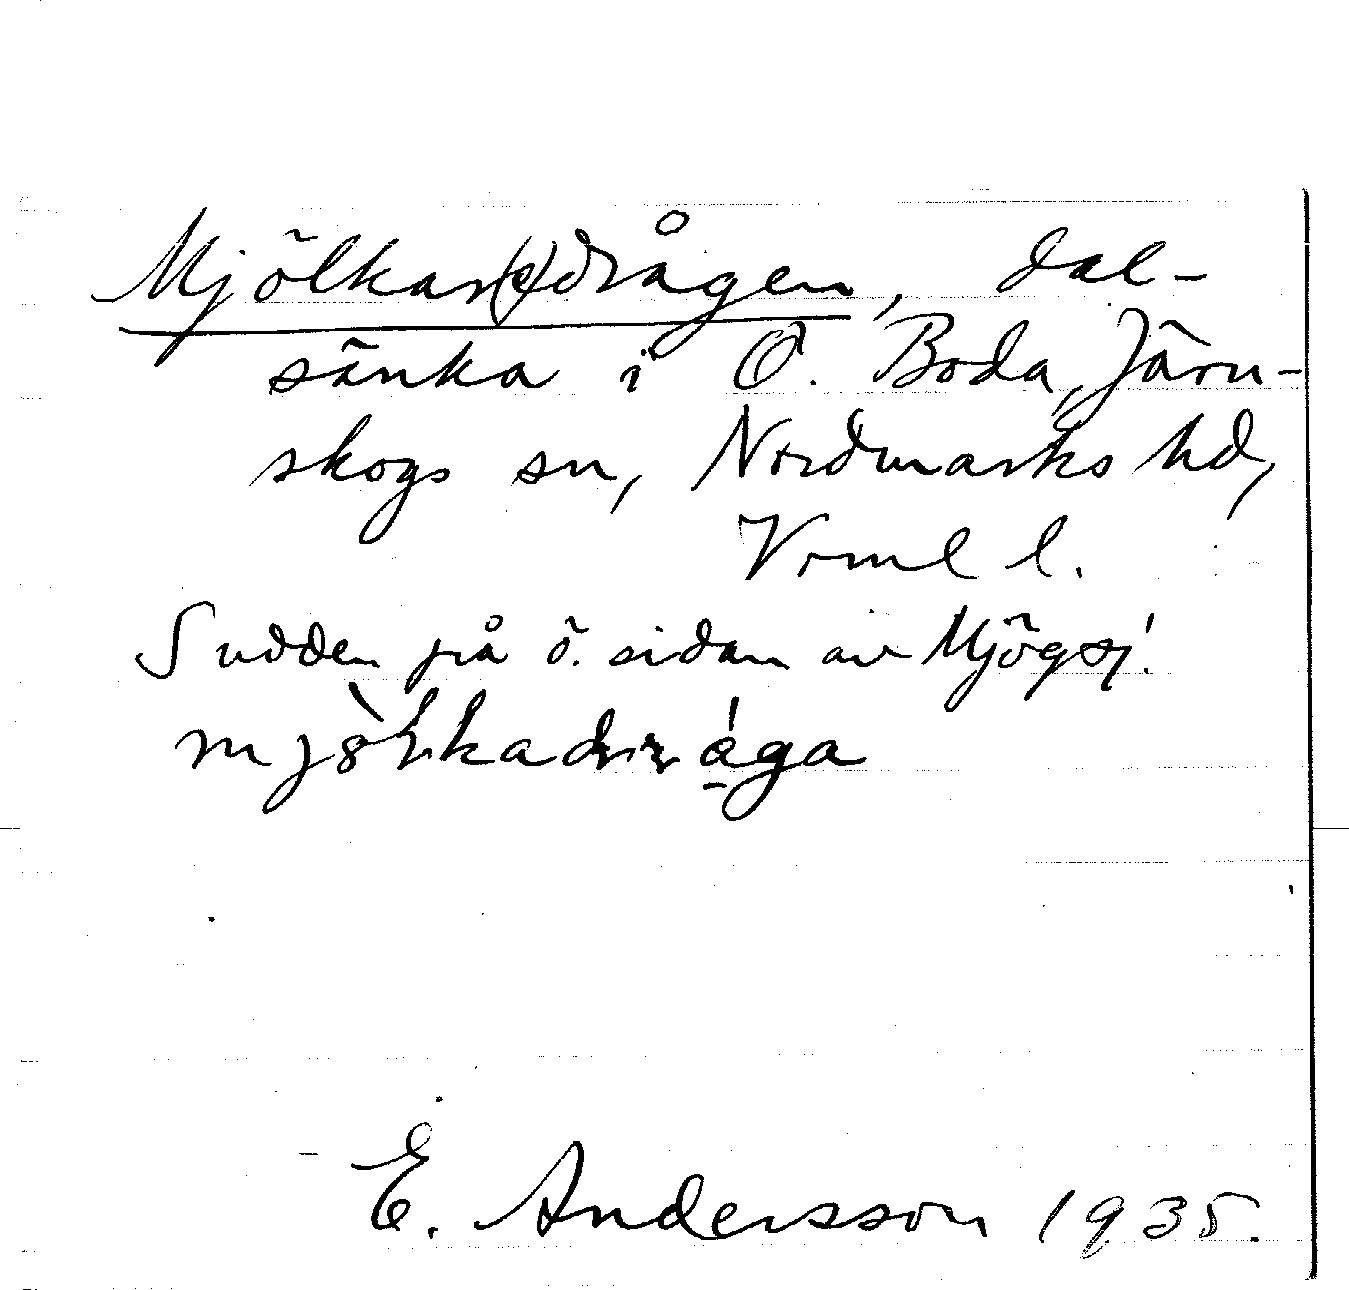 Mjölkar(s)drågen, dal-
sänka i Ö. Boda, Järn-
skogs sn, Nordmarks hd,
Vrml l.
Sudden på ö. sidan av Mjögsj.
E. Andersson 1935.